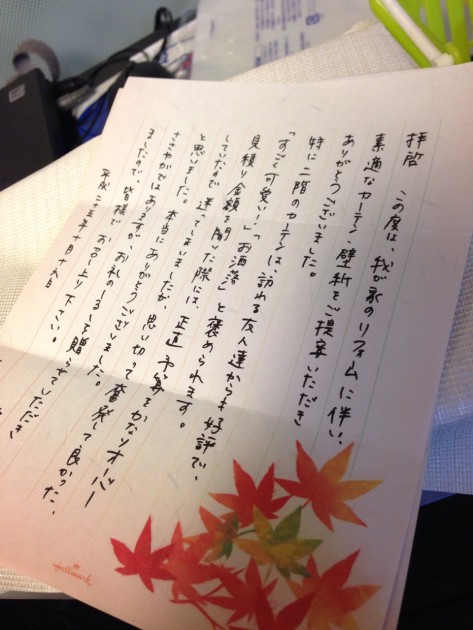 拝啓 この度は、我が家のリフォームに伴い、
素適なカーテン、壁紙をご提案いただき
ありがとうございました。
特に二階のカーテンは、訪れる友人達からも好評で、
「すごく可愛い!」「お洒落」と褒められます。
見積り金額を聞いた際には、正直予算をかなりオーバー
していたので迷ってしまいましたが、思い切って奮発して良かった、
と思いました。本当にありがとうございました。
ささやかではありますが、お礼のしるしを贈らせていただき
ましたので、皆様でお召し上り下さい。
平成二十五年十月十六日
Hallmark